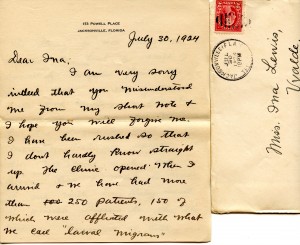 153 POWELL PLACE
JACKSONVILLE, FLORIDA
July 30, 1924
Dear Ina,
I am very sorry
indeed that you misunderstood
me from my short note &
I hope you will forgive me.
I have been rushed so that
I don't hardly know straight
up. The clinic opened when I
arrived & we have had more
than 250 patients, 150 of
which were afflicted with what
we call "larval migrans"
JACKSONVILLE, FLA.
Miss. Ina Lewis,
Uvalde,